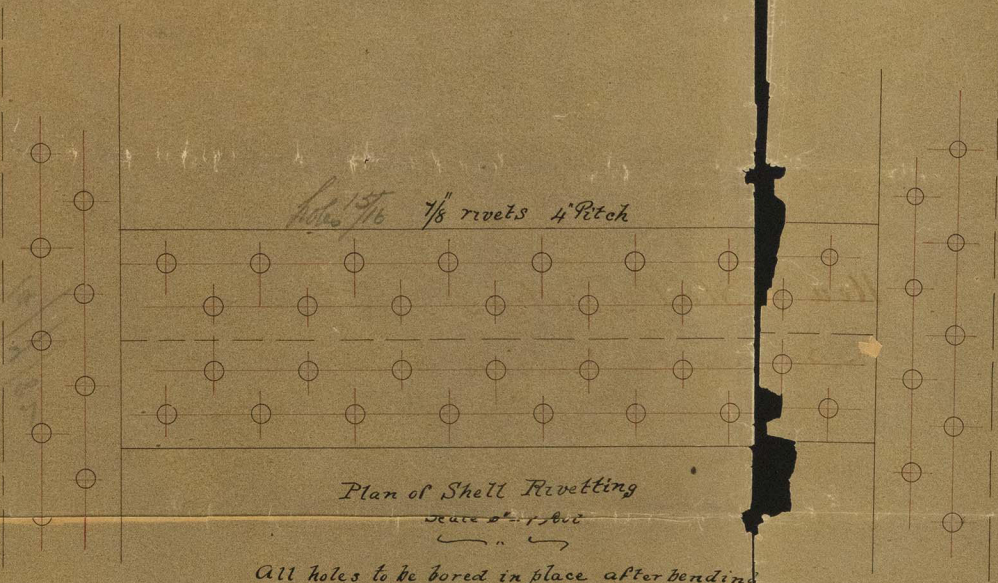 holes 15/16 7/8" rivets 4" Pitch
Plan of Shell Rivetting
Scale
All holes to be bored in place after bending